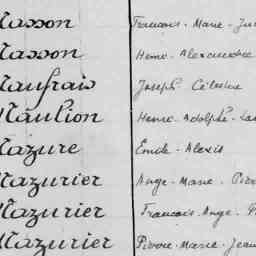 Masson Francois - Marie - Ju
Masson Henri - Alexandre
Maufrais Joseph Célestin
Maulion Henri - Adolphe - Lou
Mazure Emile - Alexis
Mazurier Ange - Marie - Pierr
Mazurier Francois - Ange - P
Mazurier Pierre - Marie - Jean